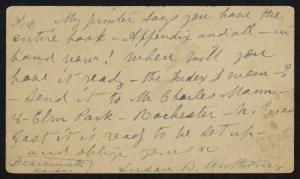 My printer says you have the
entire book - Appendix and all - in
hand now! When will you
have it ready - the Index I mean - ?
- Send it to Mr Charles Mann -
8 - Elm Park - Rochester - N. Y. as
fast it is ready to be set up -
and oblige yours &c
Susan B. Anthony